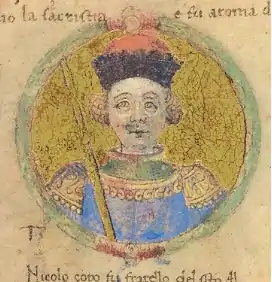 no la sacristia e fu aroma d
Nicolo covo fu fratello del sto Al